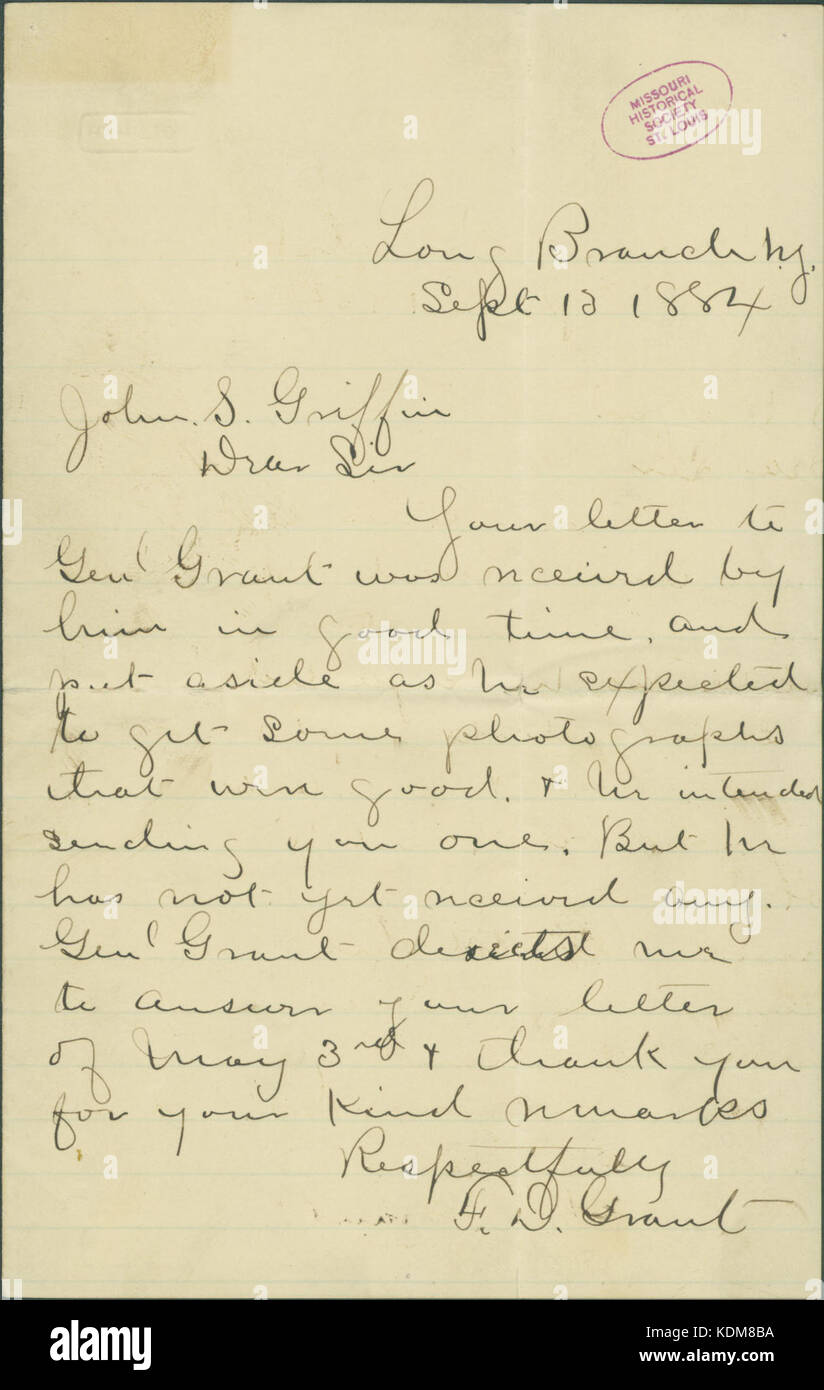 MISSOURI
HISTORICAL
SOCIETY
ST. LOUIS
Long Branch N.J.
Sept 1884
John. S. Griffin
Dear Sir
Your letter to
Genl Grant was received by
him in good time, and
put aside as he expected
to get some photographs
that were good. & he intended
sending you one. But he
has not yet received any.
Genl Grant me
to answer your letter
of May 3rd & thank you
for your kind remarks
Respectfully
F. D. Grant
alamy
Image ID: KDM8BA
www.alamy.com